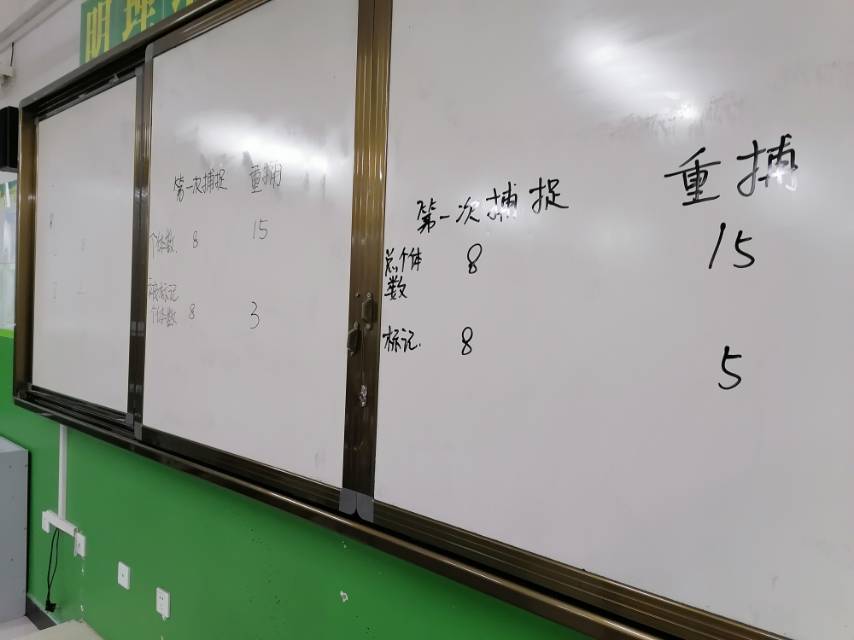 明理
第一次捕捉 重捕
个体数 8 15
标记
个体数 8 3
第一次捕捉 重捕
总个体
数 8 15
标记 8 5